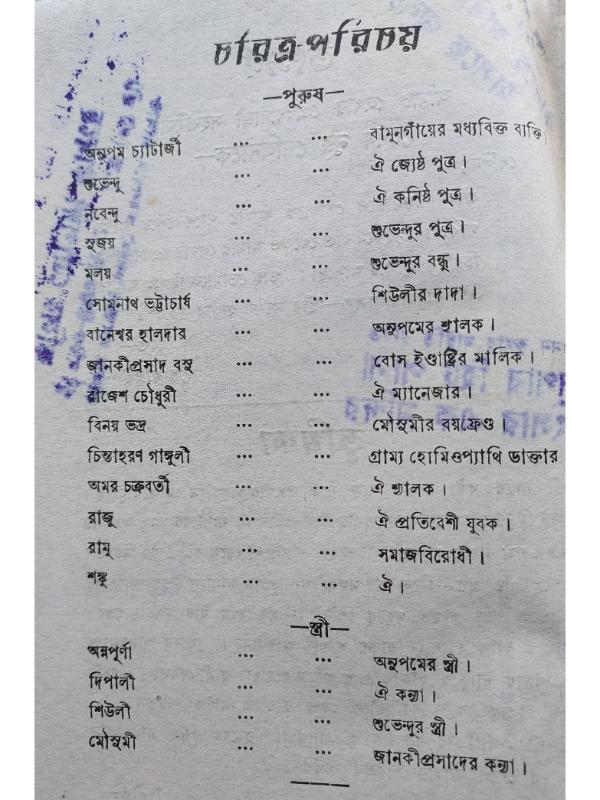 চরিত্র-পরিচয়
—পুরুষ—
অনুপম চ্যাটার্জী ... ... বামুনগাঁয়ের মধ্যবিত্ত ব্যক্তি
শুভেন্দু ... ... ঐ জ্যেষ্ঠ পুত্র।
নবেন্দু ... ... ঐ কনিষ্ঠ পুত্র।
সুজয় ... ... শুভেন্দুর পুত্র।
মলয় ... ... শুভেন্দুর বন্ধু।
সোমনাথ ভট্টাচার্য ... ... শিউলীর দাদা।
বানেশ্বর হালদার ... ... অনুপমের শ্যালক।
জানকীপ্রসাদ বসু ... ... বোস ইণ্ডাষ্ট্রির মালিক।
রীজেশ চৌধুরী ... ... ঐ ম্যানেজার।
বিনয় ভদ্র ... ... মৌসুমীর বয়ফ্রেণ্ড।
চিন্তাহরণ গাঙ্গুলী ... ... গ্রাম্য হোমিওপ্যাথি ডাক্তার
অমর চক্রবর্তী ... ... ঐ শ্যালক।
রাজু ... ... ঐ প্রতিবেশী যুবক।
রামু ... ... সমাজবিরোধী।
শঙ্কু ... ... ঐ।
—স্ত্রী—
অন্নপূর্ণা ... ... অনুপমের স্ত্রী।
দিপালী ... ... ঐ কন্যা।
শিউলী ... ... শুভেন্দুর স্ত্রী।
মৌসুমী ... ... জানকীপ্রসাদের কন্যা।